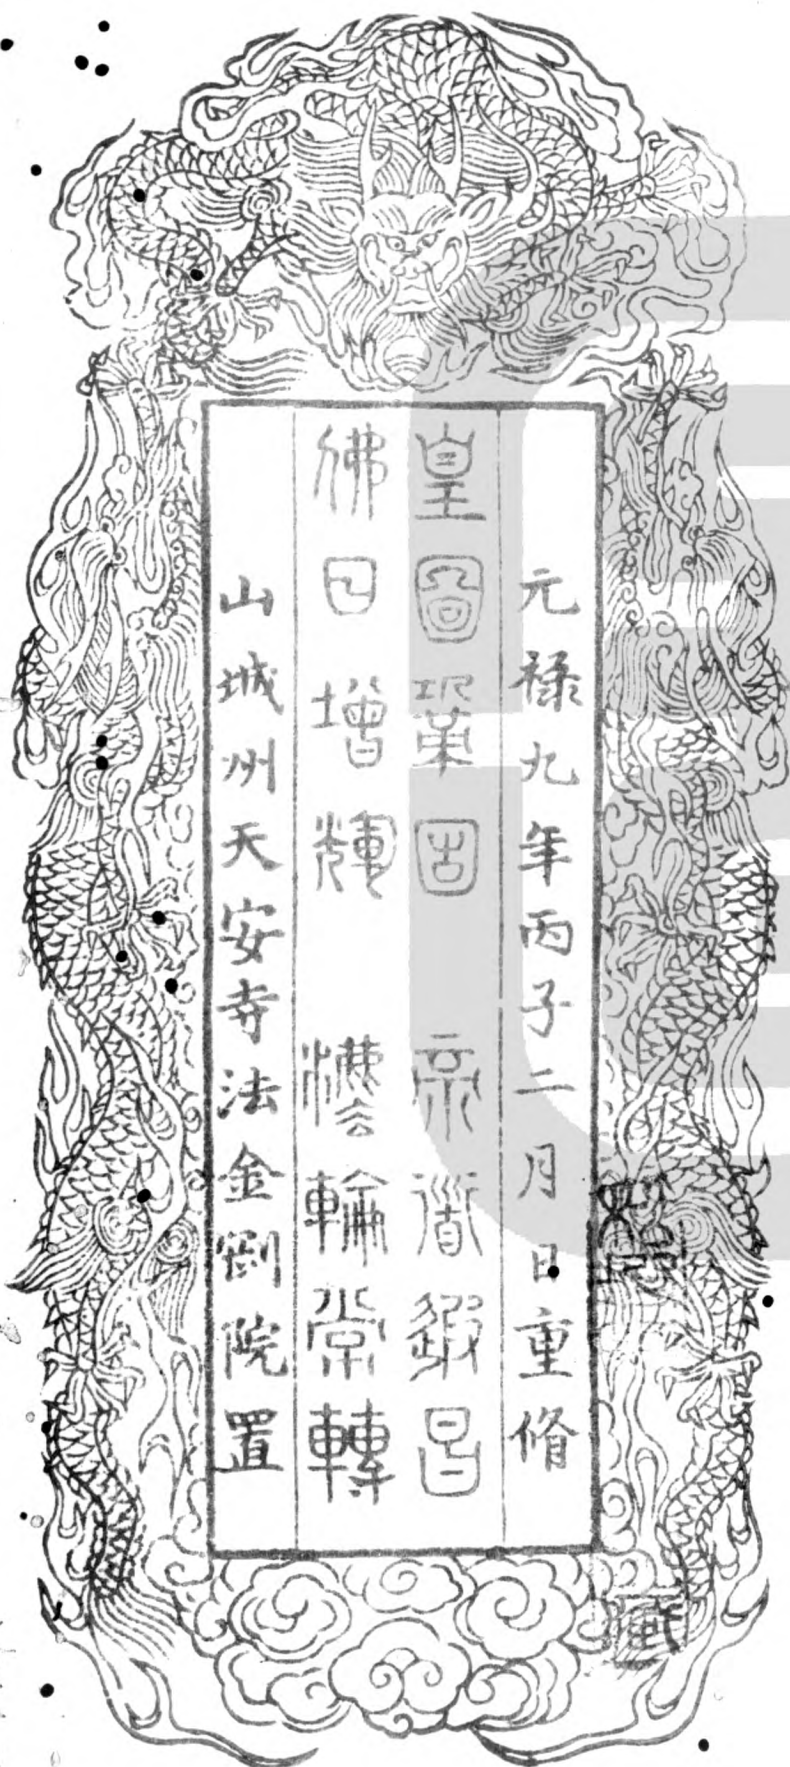 元禄九年丙子二月日重脩
皇圖鞏固 帝道遐昌
佛日增輝 法輪常轉
山城州天安寺法金剛院置
藏